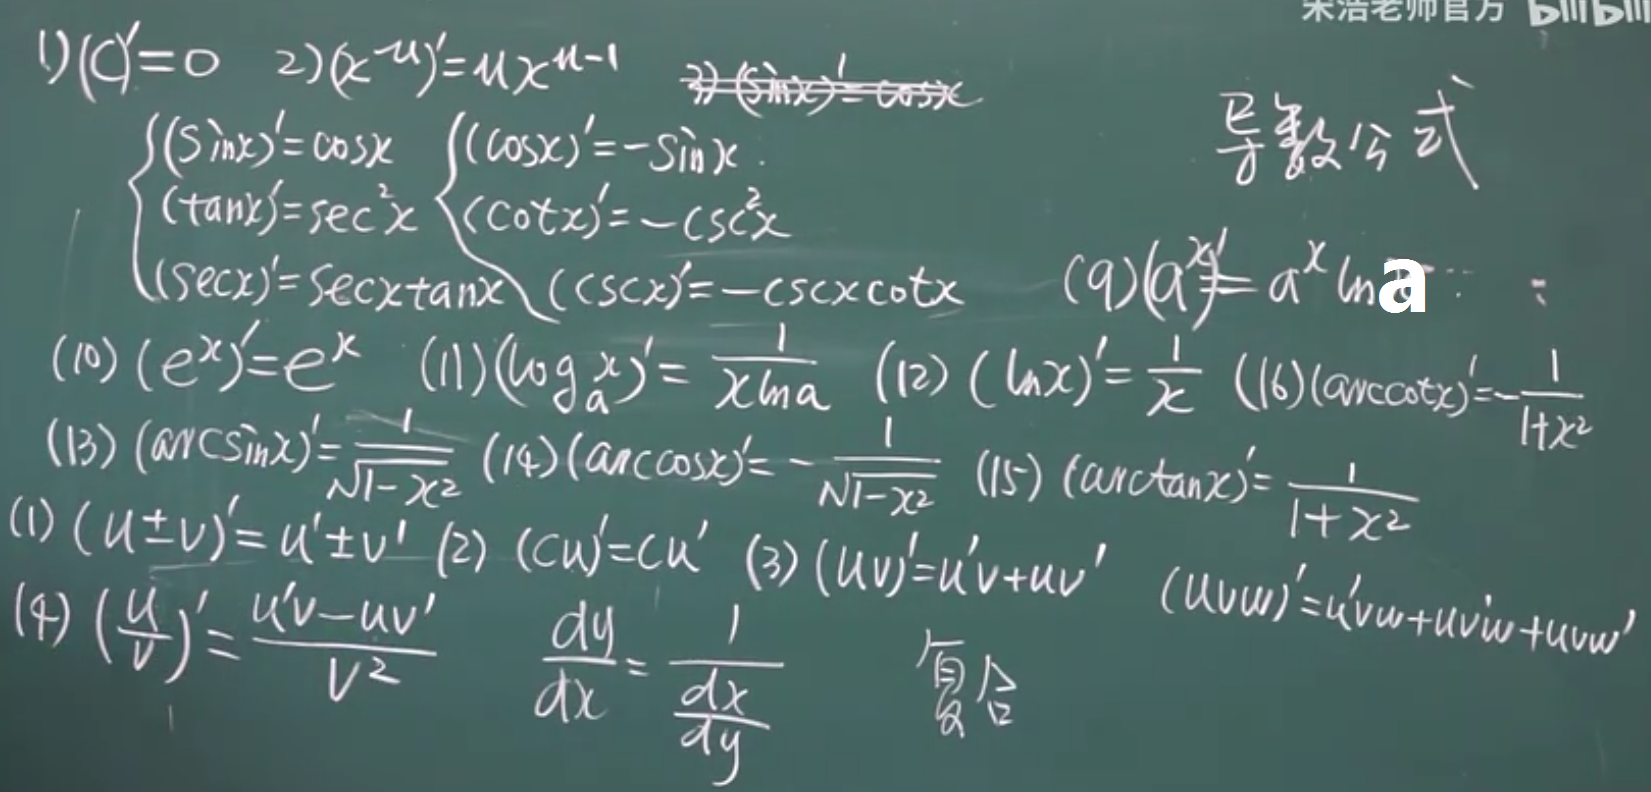 宋浩老师官方 bilibili
1) (C)'=0 2) (x^μ)'=μx^{μ-1} 3) (sinx)'=cosx
导数公式
(sinx)'=cosx (cosx)'=-sinx
(tanx)'=sec²x (cotx)'=-csc²x
(secx)'=secxtanx (cscx)'=-cscxcotx (9) (a^x)'=a^x lna
(10) (e^x)'=e^x (11) (log_a x)'=1/(xlna) (12) (lnx)'=1/x (16) (arccotx)'=-1/(1+x²)
(13) (arcsinx)'=1/√(1-x²) (14) (arccosx)'=-1/√(1-x²) (15) (arctanx)'=1/(1+x²)
(1) (u±v)'=u'±v' (2) (Cu)'=Cu' (3) (uv)'=u'v+uv' (uvw)'=u'vw+uv'w+uvw'
(4) (u/v)'=(u'v-uv')/v² dy/dx=1/(dx/dy) 复合